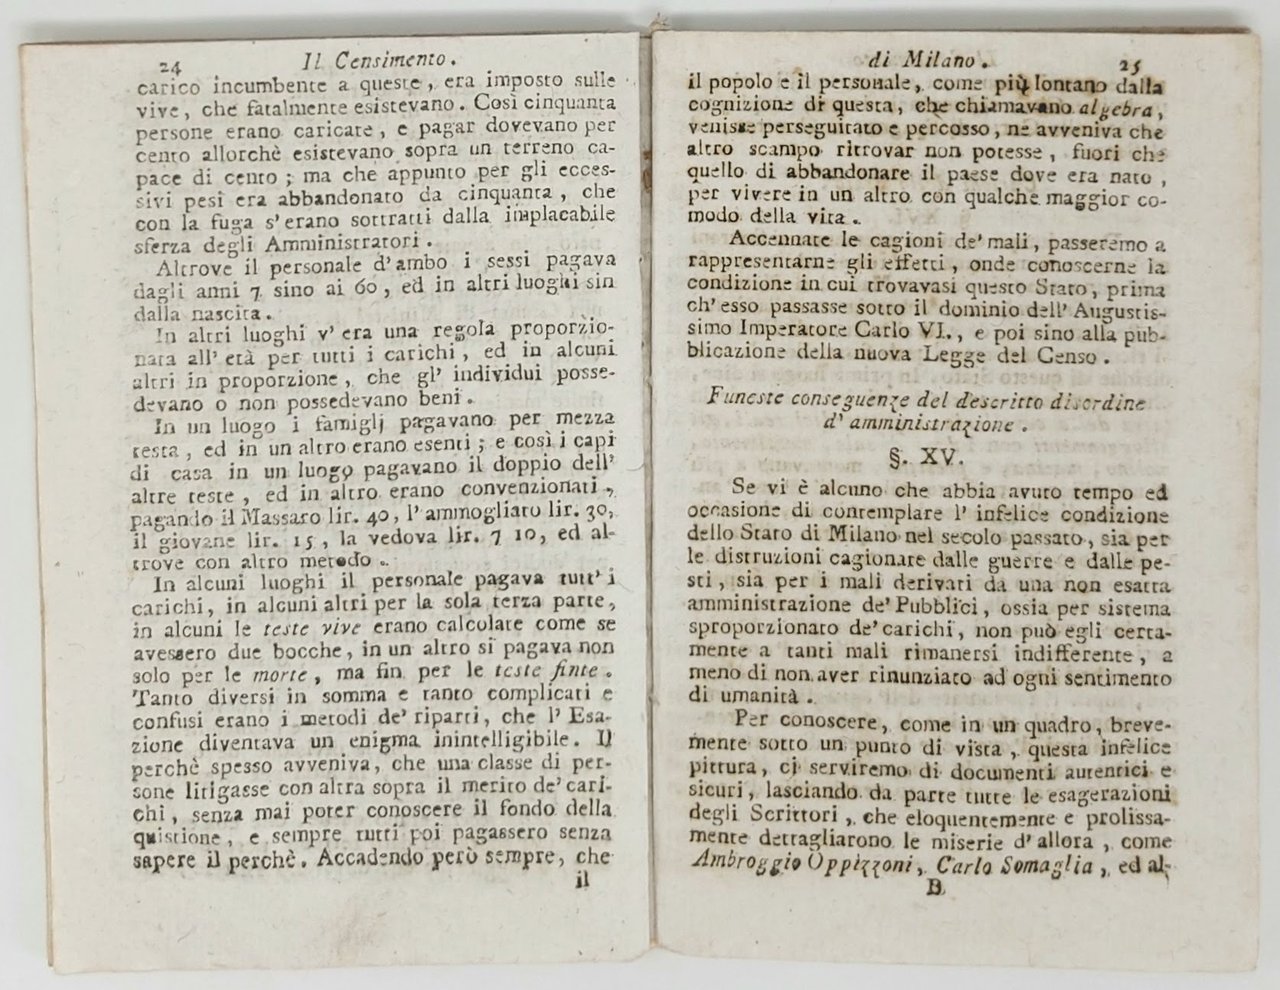 24 Il Censimento.
carico incumbente a queste, era imposto sulle
vive, che fatalmente esistevano. Così cinquanta
persone erano caricate, e pagar dovevano per
cento allorchè esistevano sopra un terreno ca-
pace di cento; ma che appunto per gli ecces-
sivi pesi era abbandonato da cinquanta, che
con la fuga s'erano sottratti dalla implacabile
sferza degli Amministratori.
Altrove il personale d'ambo i sessi pagava
dagli anni 7 sino ai 60, ed in altri luoghi sin
dalla nascita.
In altri luoghi v'era una regola proporzio-
nata all'età per tutti i carichi, ed in alcuni
altri in proporzione, che gl'individui posse-
devano o non possedevano beni.
In un luogo i famiglj pagavano per mezza
testa, ed in un altro erano esenti; e così i capi
di casa in un luogo pagavano il doppio dell'
altre teste, ed in altro erano convenzionati,
pagando il Massaro lir. 40, l'ammogliato lir. 30,
il giovane lir. 15, la vedova lir. 7 10, ed al-
trove con altro metodo.
In alcuni luoghi il personale pagava tutt'i
carichi, in alcuni altri per la sola terza parte,
in alcuni le teste vive erano calcolate come se
avessero due bocche, in un altro si pagava non
solo per le morte, ma fin per le teste finte.
Tanto diversi in somma e tanto complicati e
confusi erano i metodi de' riparti, che l'Esa-
zione diventava un enigma inintelligibile. Il
perchè spesso avveniva, che una classe di per-
sone litigasse con altra sopra il merito de' cari-
chi, senza mai poter conoscere il fondo della
quistione, e sempre tutti poi pagassero senza
sapere il perchè. Accadendo però sempre, che
il
di Milano. 25
il popolo e il personale, come più lontano dalla
cognizione di questa, che chiamavano algebra,
venisse perseguitato e percosso, ne avveniva che
altro scampo ritrovar non potesse, fuori che
quello di abbandonare il paese dove era nato,
per vivere in un altro con qualche maggior co-
modo della vita.
Accennate le cagioni de' mali, passeremo a
rappresentarne gli effetti, onde conoscerne la
condizione in cui trovavasi questo Stato, prima
ch'esso passasse sotto il dominio dell'Augustis-
simo Imperatore Carlo VI., e poi sino alla pub-
blicazione della nuova Legge del Censo.
Funeste conseguenze del descritto disordine
d'amministrazione.
§. XV.
Se vi è alcuno che abbia avuto tempo ed
occasione di contemplare l'infelice condizione
dello Stato di Milano nel secolo passato, sia per
le distruzioni cagionate dalle guerre e dalle pe-
sti, sia per i mali derivati da una non esatta
amministrazione de' Pubblici, ossia per sistema
sproporzionato de' carichi, non può egli certa-
mente a tanti mali rimanersi indifferente, a
meno di non aver rinunziato ad ogni sentimento
di umanità.
Per conoscere, come in un quadro, breve-
mente sotto un punto di vista, questa infelice
pittura, ci serviremo di documenti autentici e
sicuri, lasciando da parte tutte le esagerazioni
degli Scrittori, che eloquentemente e prolissa-
mente dettagliarono le miserie d'allora, come
Ambroggio Oppizzoni, Carlo Somaglia, ed al-
B